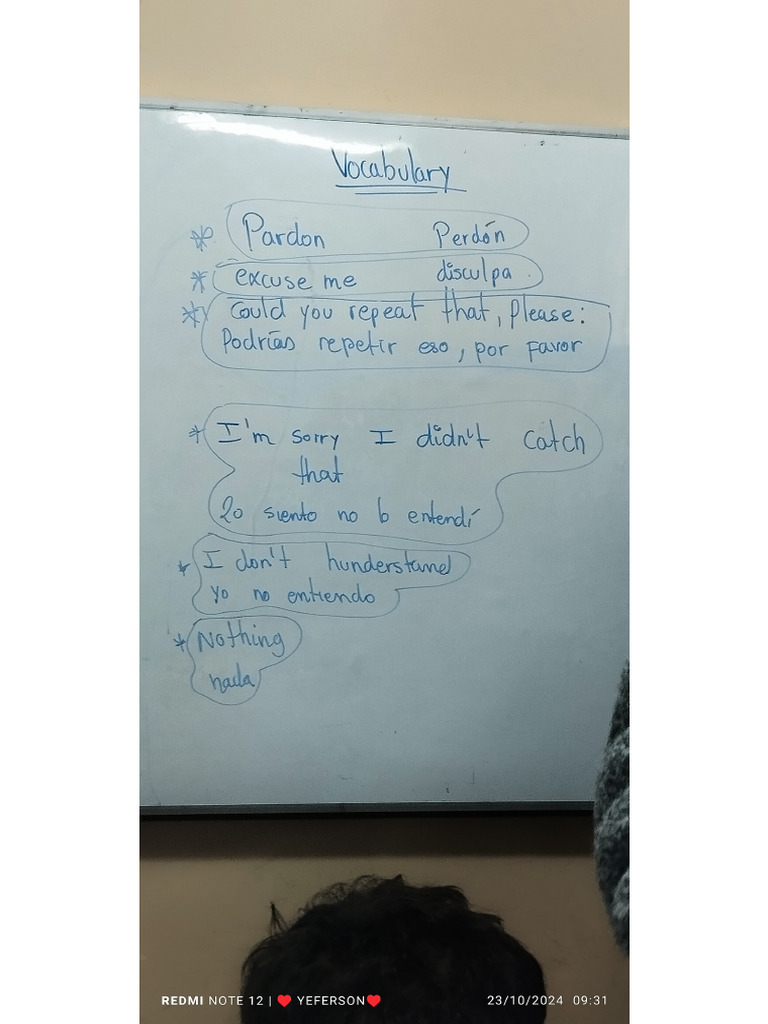 Vocabulary
* Pardon Perdón
* excuse me disculpa
* Could you repeat that, please:
Podrías repetir eso, por favor
* I'm sorry I didn't catch
that
Lo siento no lo entendí
* I don't hunderstand
yo no entiendo
* Nothing
nada
REDMI NOTE 12 | ❤ YEFERSON❤ 23/10/2024 09:31